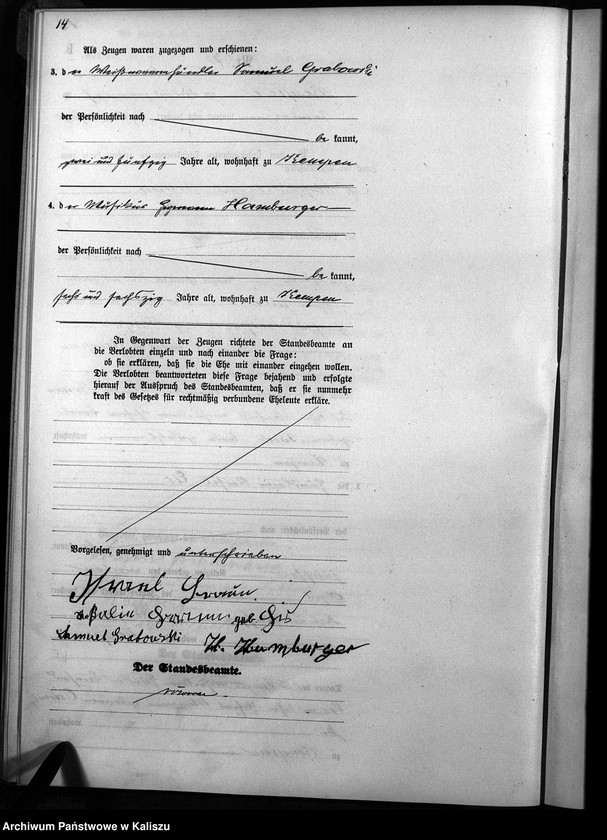 14
Als Zeugen waren zugezogen und erschienen:
3. der Weißwaarenhändler Samuel Grabowski
der Persönlichkeit nach
bekannt,
zwei und fünfzig Jahre alt, wohnhaft zu Kempen
4. der Musikus Hermann Hamburger
der Persönlichkeit nach
bekannt,
sechs und sechszig Jahre alt, wohnhaft zu Kempen
In Gegenwart der Zeugen richtete der Standesbeamte an
die Verlobten einzeln und nach einander die Frage:
ob sie erklären, daß sie die Ehe mit einander eingehen wollen.
Die Verlobten beantworteten diese Frage bejahend und erfolgte
hierauf der Ausspruch des Standesbeamten, daß er sie nunmehr
kraft des Gesetzes für rechtmäßig verbundene Eheleute erkläre.
Vorgelesen, genehmigt und unterschrieben
Israel
Rosalie geb.
Samuel Grabowski H. Hamburger
Der Standesbeamte.
Archiwum Państwowe w Kaliszu